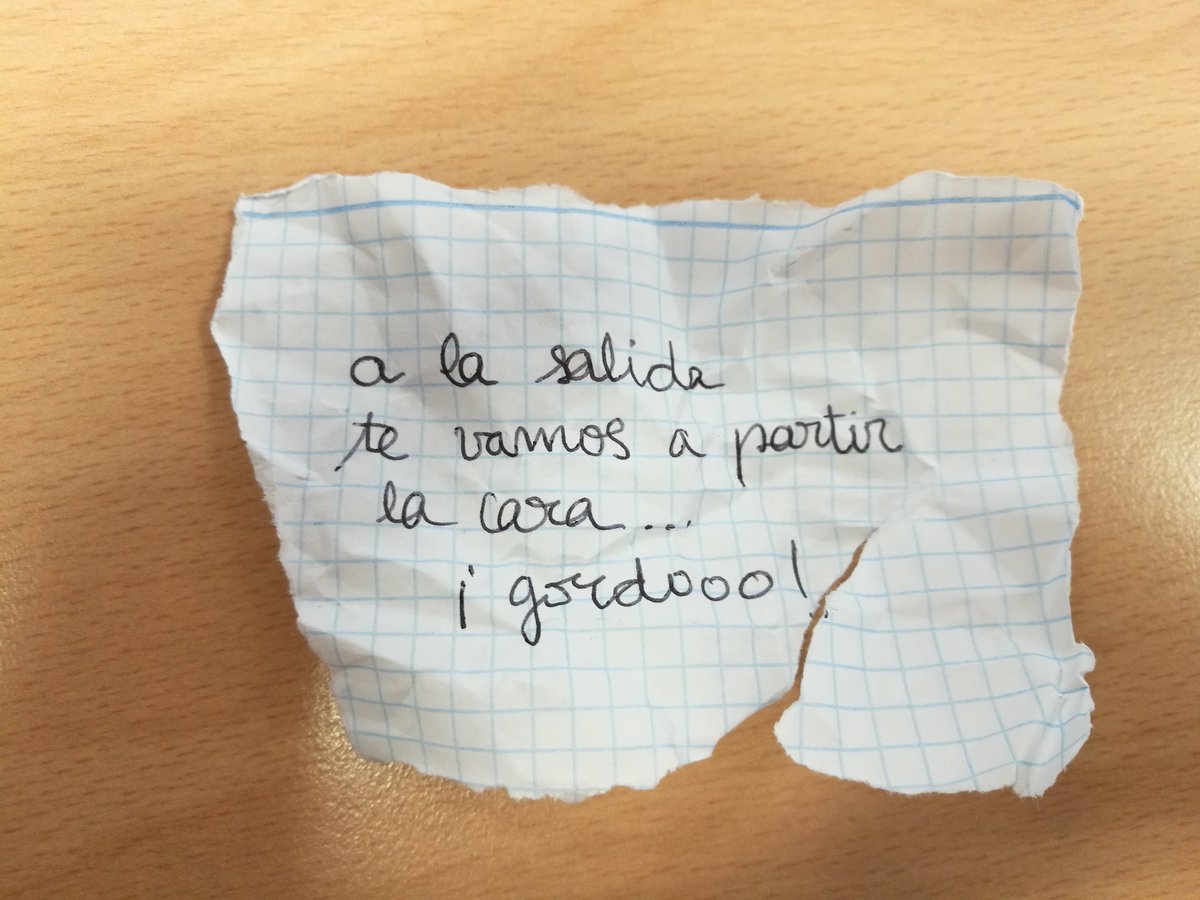 a la salida
te vamos a partir
la cara...
¡gordooo!